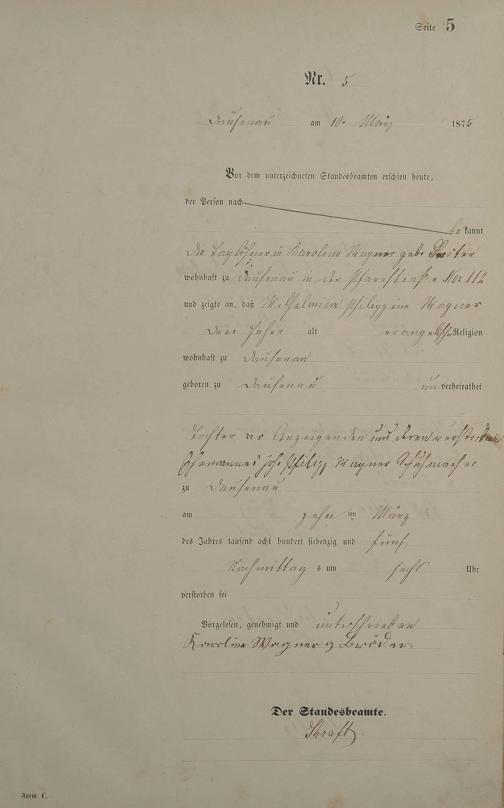 Seite 5
Nr. 5
Dausenau am 10. März 1875
Vor dem unterzeichneten Standesbeamten erschien heute,
der Person nach
bekannt
die Taglöhnerin Karoline Wagner geb.
wohnhaft zu Dausenau in der Pfarrstraße No. 112
und zeigte an, daß Wilhelmine Philippine Wagner
drei Jahre alt evangelische Religion
wohnhaft zu Dausenau
geboren zu Dausenau unverheirathet
Tochter der Anzeigenden und deren verstorbenen
Ehemannes Joh. Philipp Wagner Schuhmacher
zu Dausenau
am zehn ten März
des Jahres tausend acht hundert siebenzig und fünf
Nachmittags um sechs Uhr
verstorben sei
Vorgelesen, genehmigt und unterschrieben
Karoline Wagner g Bröder
Der Standesbeamte.
Form C.